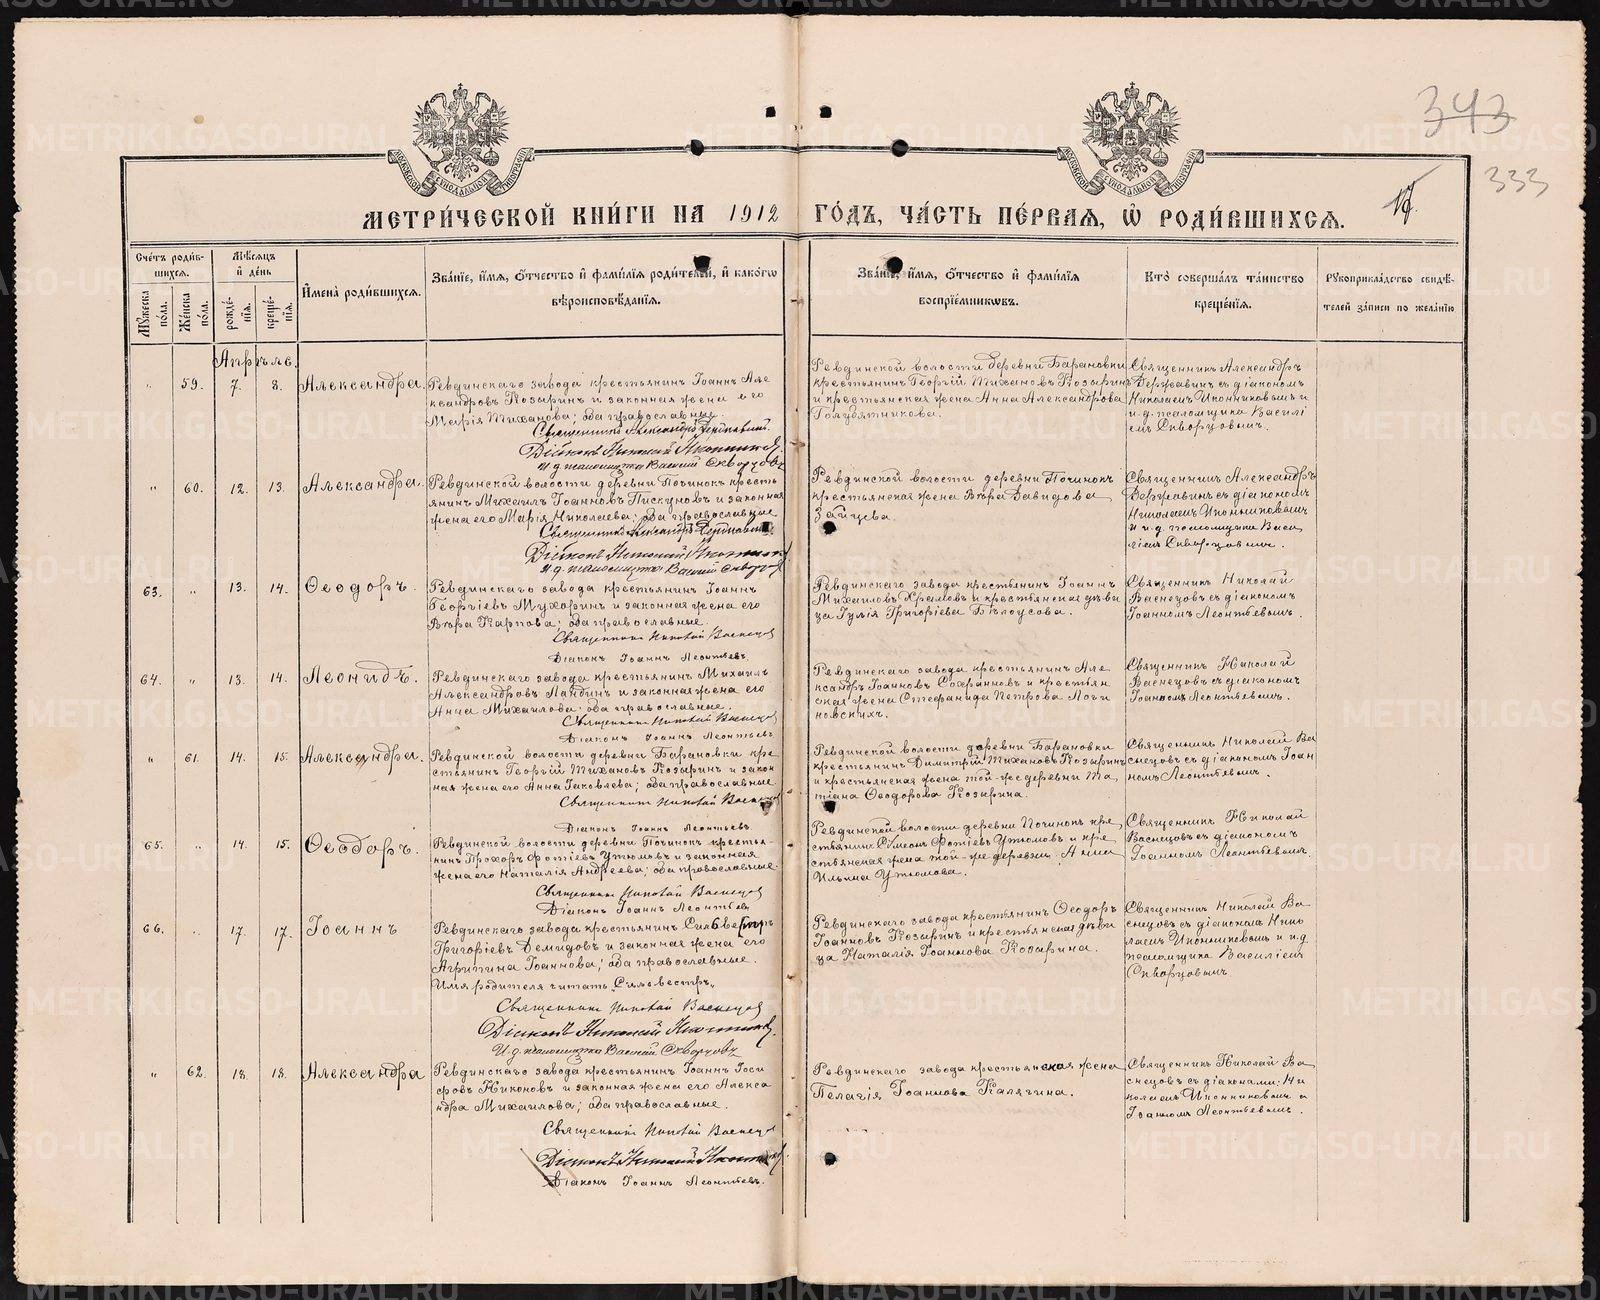 343
333
17.
МОСКОВСКОЙ СѴНОДАЛЬНОЙ ТИПОГРАФІИ
МОСКОВСКОЙ СѴНОДАЛЬНОЙ ТИПОГРАФІИ
МЕТРИ́ЧЕСКОЙ КНИ́ГИ НА 1912 ГО́ДЪ, ЧА́СТЬ ПЕ́РВАЯ, Ѿ РОДИ́ВШИХСЯ.
Сче́тъ роди́в-
шихся.
Мꙋ́жеска по́ла.
Же́нска по́ла.
Мѣ́сяцъ
и҆ де́нь
рожде́-
нїѧ.
креще́-
нїѧ.
И҆мена̀ роди́вшихся.
Зва́нїе, и҆́мя, ѻ҆́тчество и҆ фами́лїя роди́телей, и҆ како́гѡ
вѣроисповѣ́данїя.
Зва́нїе, и҆́мя, ѻ҆́тчество и҆ фами́лїя
воспрїе́мникѡвъ.
Кто̀ соверша́лъ та́инство
креще́нїя.
Рꙋкоприкла́дство свидѣ́-
телей за́писи по жела́нїю
Апрѣль.
„ 59. 7. 8. Александра.
Ревдинскаго завода крестьянинъ Іоаннъ Але
ксандровъ Козыринъ и законная жена его
Марія Тиханова; оба православные.
Священникъ Александръ Державинъ.
Діаконъ Николай Иконниковъ.
И. д. псаломщика Василій Скворцовъ
Ревдинской волости деревни Барановки
крестьянинъ Георгій Тихановъ Козыринъ
и крестьянская жена Анна Александрова
Голубятникова.
Священникъ Александръ
Державинъ съ діакономъ
Николаемъ Иконниковымъ и
и. д. псаломщика Василі
емъ Скворцовымъ.
„ 60. 12. 13. Александра.
Ревдинской волости деревни Починокъ кресть
янинъ Михаилъ Іоанновъ Пискуновъ и законная
жена его Марія Николаева; оба православные
Священникъ Александръ Державинъ.
Діаконъ Николай Иконников
И. д. псаломщика Василій Скворцовъ
Ревдинской волости деревни Починокъ
крестьянская жена Вѣра Давидова
Зайцева.
Священникъ Александръ
Державинъ съ діакономъ
Николаемъ Иконниковымъ
и и. д. псаломщика Васи
ліемъ Скворцовымъ.
63. „ 13. 14. Ѳеодоръ.
Ревдинскаго завода крестьянинъ Іоаннъ
Георгіевъ Мухоринъ и законная жена его
Вѣра Карпова; оба православные.
Священникъ Николай Васнецовъ
Діаконъ Іоаннъ Леонтьевъ.
Ревдинскаго завода крестьянинъ Іоаннъ
Михаиловъ Храмовъ и крестьянская дѣви
ца Іулія Григоріева Бѣлоусова.
Священникъ Николай
Васнецовъ съ діакономъ
Іоанномъ Леонтьевымъ.
64. „ 13. 14. Леонидъ.
Ревдинскаго завода крестьянинъ Михаилъ
Александровъ Ландинъ и законная жена его
Анна Михаилова; оба православные.
Священникъ Николай Васнецов
Діаконъ Іоаннъ Леонтьевъ
Ревдинскаго завода крестьянинъ Але
ксандръ Іоанновъ Сохранновъ и крестьян
ская жена Стефанида Петрова Логи
новскихъ.
Священникъ Николай
Васнецовъ съ діакономъ
Іоанномъ Леонтьевымъ.
„ 61. 14. 15. Александра.
Ревдинской волости деревни Барановки кре
стьянинъ Георгій Тихановъ Козыринъ и закон
ная жена его Анна Іаковлева; оба православные
Священникъ Николай Васнецов
Діаконъ Іоаннъ Леонтьевъ.
Ревдинской волости деревни Барановки
крестьянинъ Димитрій Тихановъ Козыринъ
и крестьянская жена той-же деревни Та
тіана Ѳеодорова Козырина.
Священникъ Николай Ва
снецовъ съ діакономъ Іоан
номъ Леонтьевымъ.
65. „ 14. 15. Ѳеодоръ.
Ревдинской волости деревни Починокъ крестья-
нинъ Прохоръ Фотіевъ Утюмовъ и законная
жена его Наталія Андреева; оба православные
Священникъ Николай Васнецов
Діаконъ Іоаннъ Леонтьевъ
Ревдинской волости деревни Починокъ кре
стьянинъ Сѵмеонъ Фотіевъ Утюмовъ и кре
стьянская жена той-же деревни Анна
Ильина Утюмова.
Священникъ Николай
Васнецовъ съ діакономъ
Іоанномъ Леонтьевымъ.
66. „ 17. 17. Іоаннъ
Ревдинскаго завода крестьянинъ Сильвестръ
Григоріевъ Демидовъ и законная жена его
Агрипина Іоаннова; оба православные.
Имя родителя читать „Сильвестръ„
Священникъ Николай Васнецов
Діаконъ Николай Иконников.
И. д. псаломщика Василій Скворцовъ
Ревдинскаго завода крестьянинъ Ѳеодоръ
Іоанновъ Козыринъ и крестьянская дѣви
ца Наталія Іоаннова Козырина.
Священникъ Николай Ва
снецовъ съ діакона Нико
лаемъ Иконниковымъ и и.д.
псаломщика Василіемъ
Скворцовымъ
„ 62. 18. 18. Александра
Ревдинскаго завода крестьянинъ Іоаннъ Іоси
фовъ Никоновъ и законная жена его Алекса
ндра Михаилова; оба православные.
Священникъ Николай Васнецов
Діаконъ Николай Иконников
Діаконъ Іоаннъ Леонтьевъ.
Ревдинскаго завода крестьянская жена
Пелагія Іоаннова Калягина.
Священникъ Николай Ва
снецовъ съ діаконами: Ни
колаемъ Иконниковымъ и
Іоанномъ Леонтьевымъ.
METRIKI.GASO-URAL.RU